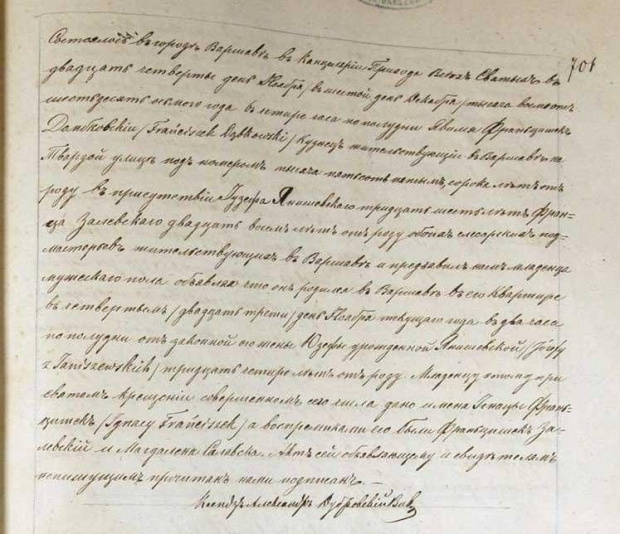 701
Состоялось въ городѣ Варшавѣ въ Канцеляріи Прихода Всѣхъ Святыхъ въ
двадцать четвертый день Ноября /въ шестой день Декабря/ тысяча восемьсотъ
шестьдесятъ осьмого года въ четыре часа по полудни. Явился Францишекъ
Домбковскій /Franciszek Dąbkowski/ Кузнецъ жительствующій въ Варшавѣ на
Твардой улицѣ подъ номеромъ тысяча пятьсотъ пятымъ, сорока лѣтъ отъ
роду въ присутствіи Іузефа Янишевскаго тридцать шесть лѣтъ Фран-
ца Залевскаго двадцать восемь лѣтъ отъ роду обоихъ слесарскихъ под-
мастерьевъ жительствующихъ въ Варшавѣ и предъявилъ намъ младенца
мужескаго пола объявляя что онъ родился въ Варшавѣ въ его Квартире
въ четвертымъ /двадцать трети/ день Ноября текущаго года въ два часа
по полудни отъ законной его жены Юзефы урожденной Янишевской /Józefy
z Janiszewskich/ тридцать четыре лѣтъ отъ роду. Младенцу этому при
святомъ Крещеніи совершенномъ сего числа дано имена Игнацы Фран-
цишекъ /Ignacy Franciszek/ а воспріемниками его были Францишекъ За-
левскій и Магдалена Актъ сей объявляющему и свидѣтелямъ
неписущимъ прочитанъ нами подписанъ. —
Ксендзъ Александръ Дубровскій Вик.